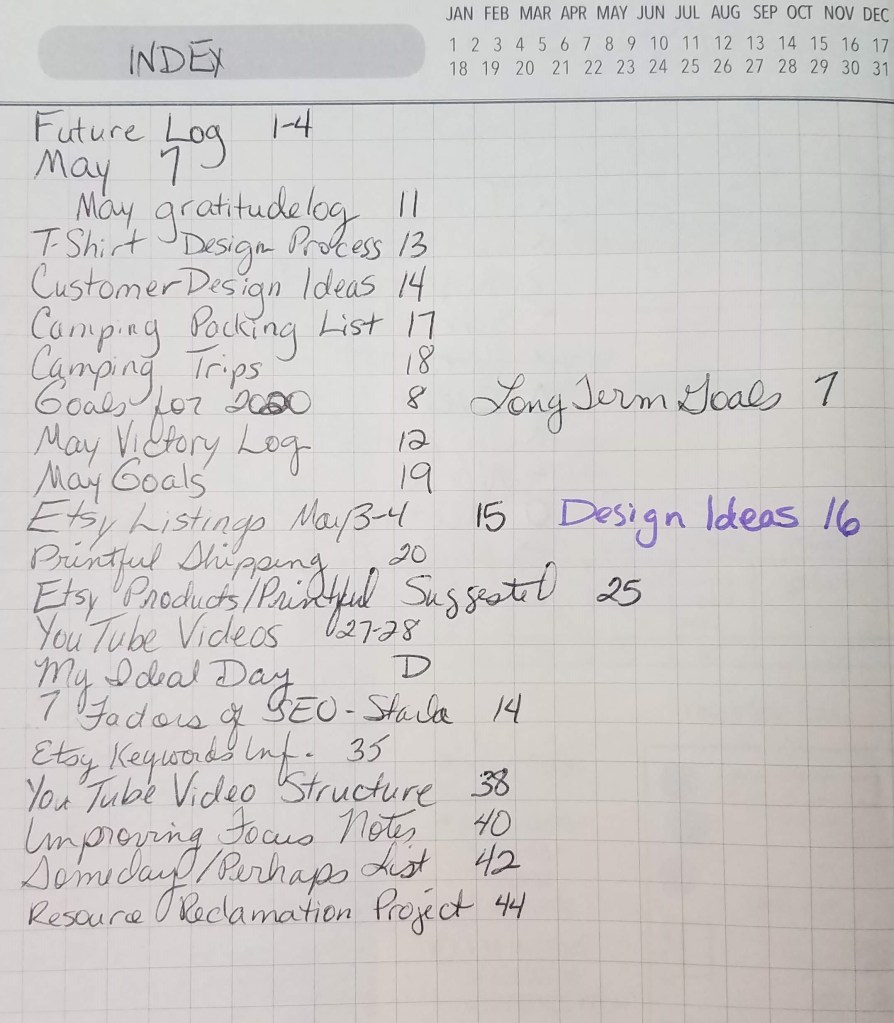 JAN FEB MAR APR MAY JUN JUL AUG SEP OCT NOV DEC
1 2 3 4 5 6 7 8 9 10 11 12 13 14 15 16 17
18 19 20 21 22 23 24 25 26 27 28 29 30 31
INDEX
Future Log 1-4
May 7
May gratitude log 11
T-Shirt Design Process 13
Customer Design Ideas 14
Camping Packing List 17
Camping Trips 18
Goals for 2020 8 Long Term Goals 7
May Victory Log 12
May Goals 19
Etsy Listings May 3-4 15 Design Ideas 16
Printful Shipping 20
Etsy Products/Printful Suggested 25
YouTube Videos 27-28
My Ideal Day D
7 Factors of SEO - Starla 14
Etsy Keywords Inf. 35
YouTube Video Structure 38
Improving Focus Notes 40
Someday/Perhaps List 42
Resource Reclamation Project 44